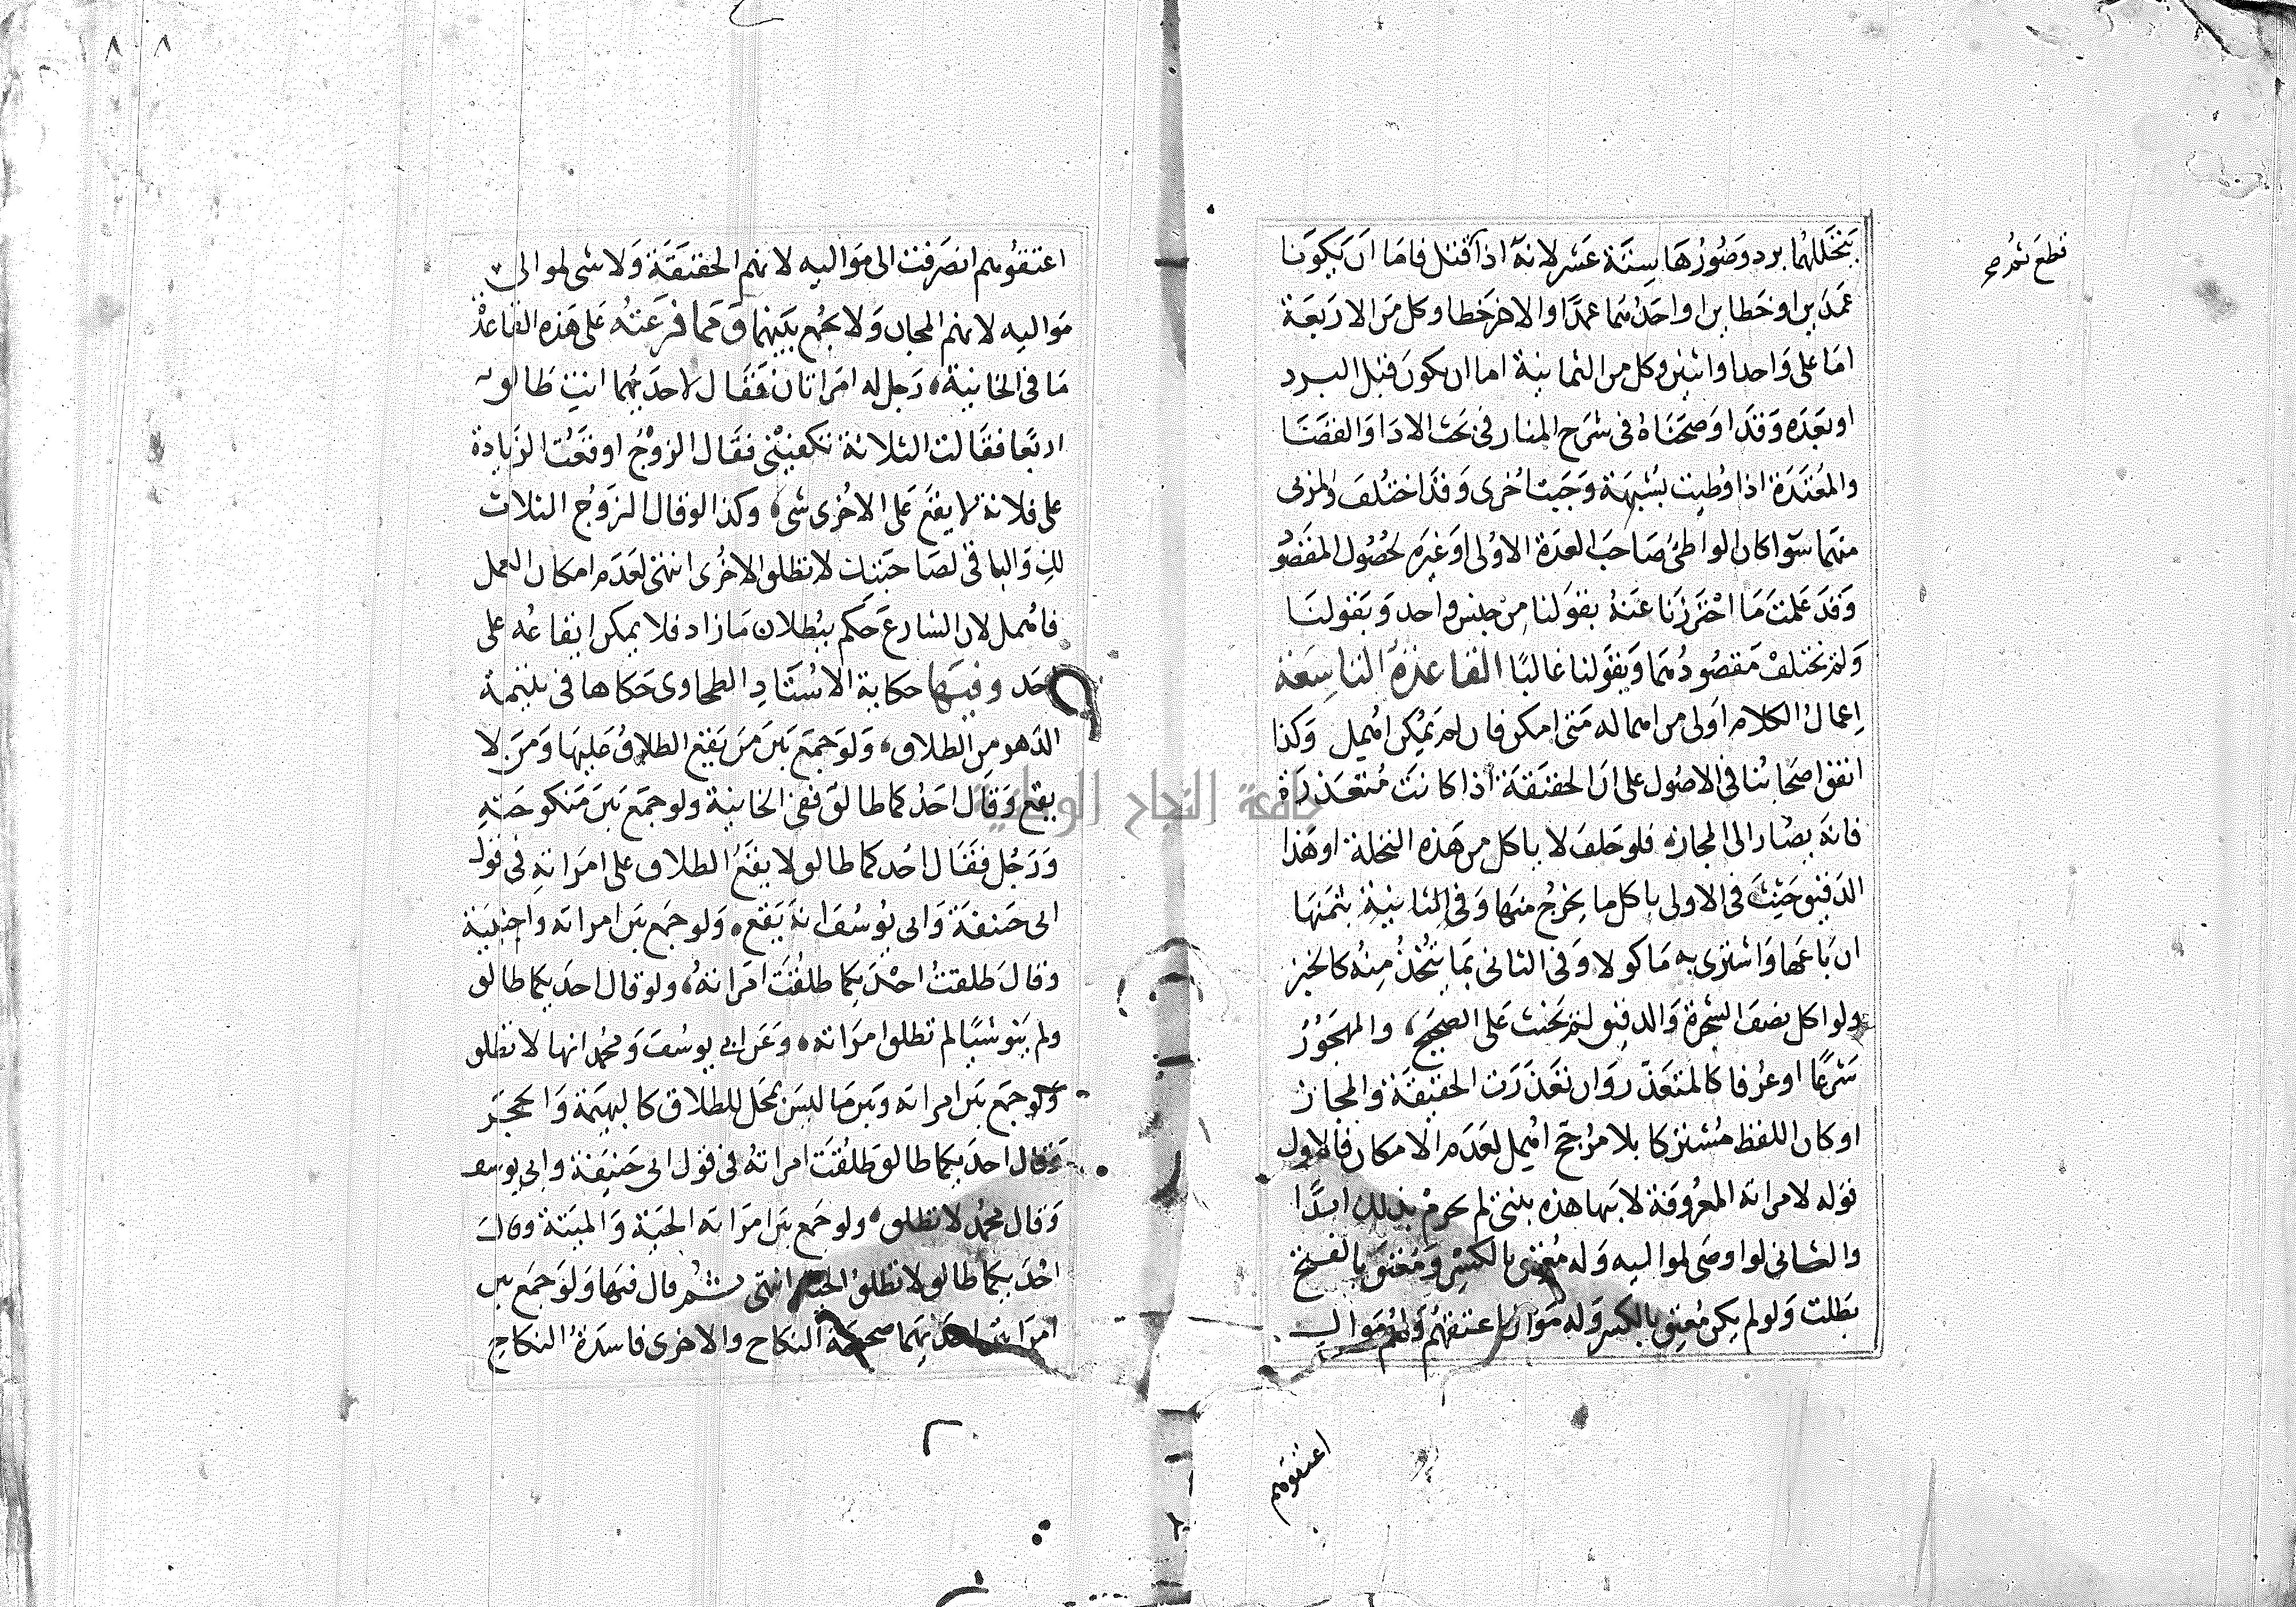 يتخللهما برد وصورها ستة عشر لانه اذا قتل فاما ان يكونا
قطع ثم صح
عمدين او خطاين او احدهما عمدا والاخر خطا وكل من الاربعة
اما على واحد او اثنين وكل من الثمانية اما ان يكون قبل البرد
او بعده وقد اوضحناه فى شرح المنار فى بحث الادا والقضا
والمعتدة اذا وطيت بشبهة وجبت اخرى وقد اختلف والمرىى
منهما سوا كان الواطئ صاحب العدة الاولى او غيره لحصول المقصو
وقد علمت ما احترزنا عنه بقولنا من جنس واحد وبقولنا
ولم تختلف مقصودهما وبقولنا غالبا القاعدة التاسعة
إعمال الكلام اولى من اهماله متى امكن فان لم يمكن اهمل وكذا
اتفق اصحابنا فى الاصول على ان الحقيقة اذا كانت متعذرة
فانه يصار الى المجاز فلو حلف لا ياكل من هذه النخلة او هذا
الدقيق حنث فى الاولى باكل ما يخرج منها وفى الثانية بثمنها
ان باعها واشترى به ماكولا وفى الثانى بما يتخذ منه كالخبز
ولو اكل نصف الشجرة والدقيق لم يحنث على الصحيح والمهجور
شرعا او عرفا كالمتعذر وان تعذرت الحقيقة والمجاز
او كان اللفظ مشتركا بلا مرجح اهمل لعدم الامكان فالاول
قوله لامراته المعروفة لابيها هذه بنتى لم تحرم بذلك ابدا
والثانى لو اوصى لمواليه وله معتق بالكسر ومعتق بالفتح
بطلت ولو لم يكن معتق بالكسر وله موال اعتقهم ولهم موال
اعتقوهم
اعتقوهم انصرفت الى مواليه لانهم الحقيقة ولا شى لموالى
مواليه لانهم المجاز ولا يجمع بينهما ومما فرعته على هذه القاعدة
ما فى الخانية رجل له امراتان فقال لاحديهما انت طالق
اربعا فقالت الثلاثة تكفينى فقال الزوج اوقعت الزيادة
على فلانة لا يقع على الاخرى شى وكذا لو قال الزوج الثلاث
لك والباقى لصاحبتك لا تطلق الاخرى انتهى لعدم امكان العمل
فاهمل لان الشارع حكم ببطلان ما زاد فلا يمكن ايقاعه على
احد وفيها حكاية الاستاد الطحاوى حكاها فى يتيمة
الدهر من الطلاق ولو جمع بين من يقع الطلاق عليها ومن لا
يقع وقال احدكما طالق ففى الخانية ولو جمع بين منكوحته
ورجل فقال احدكما طالق لا يقع الطلاق على امراته فى قول
ابى حنيفة وابى يوسف انه يقع ولو جمع بين امراته واجنبية
وقال طلقت احديكما طلقت امراته ولو قال احديكما طالق
ولم ينو شيا لم تطلق امراته وعن ابى يوسف ومحمد انها لا تطلق
ولو جمع بين امراته وبين ما ليس بمحل للطلاق كالبهيمة والحجر
وقال احديكما طالق طلقت امراته فى قول ابى حنيفة وابى يوسف
وقال محمد لا تطلق ولو جمع بين امراته الحية والميتة وقال
احديكما طالق لا تطلق الحية انتهى ثم قال فيها ولو جمع بين
امراتين احديهما صحيحة النكاح والاخرى فاسدة النكاح
جامعة النجاح الوطنية